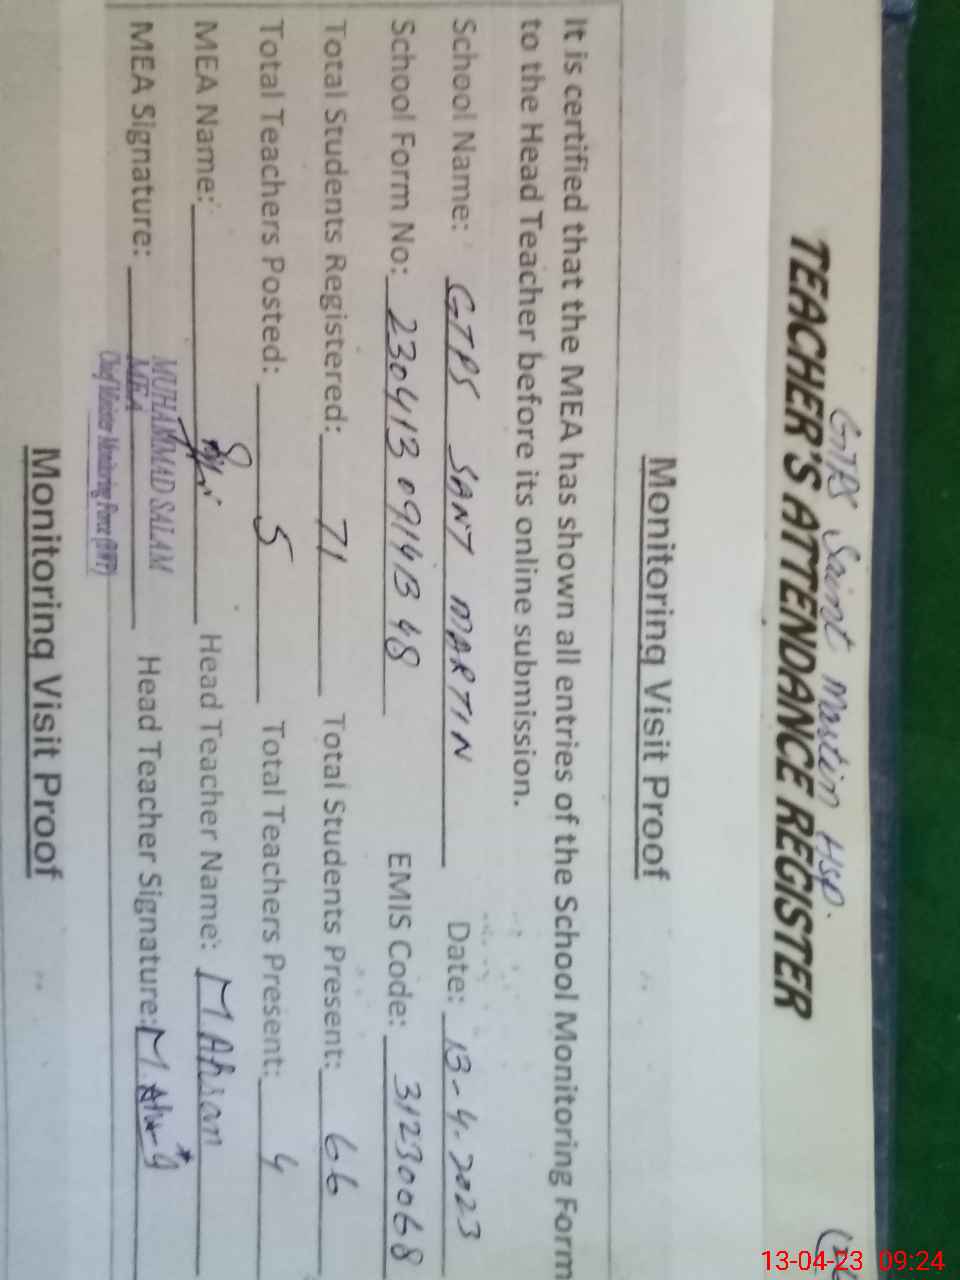 GTPS Saint Martin Hsp.
TEACHER'S ATTENDANCE REGISTER
Monitoring Visit Proof
It is certified that the MEA has shown all entries of the School Monitoring Form
to the Head Teacher before its online submission.
School Name: GTPS SANT MARTIN Date: 13-4-2023
School Form No: 2304130914B48 EMIS Code: 31230068
Total Students Registered: 71 Total Students Present: 66
Total Teachers Posted: 5 Total Teachers Present: 4
MEA Name: Head Teacher Name: M Ahsan
MEA Signature: Head Teacher Signature:
MUHAMMAD SALAM
MEA
Chief Minister Monitoring Force (BWP)
Monitoring Visit Proof
13-04-23 09:24